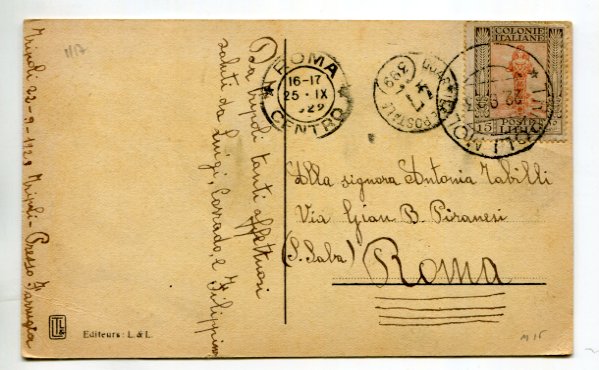 Tripoli 22-9-1929 Tripoli - Presso Farrugia
Da Tripoli tanti affettuosi
saluti da Luigi, Corrado, e Filippino
ROMA
16-17
25 · IX
929
CENTRO
399
POSTALE
COLONIE
ITALIANE
22.9.29
TRIPOLI
15 POSTE
LIBIA
Alla signora Antonia Tabilli
Via Gian B. Piranesi
(S. Saba)
Roma
L&L
Editeurs: L & L.
M 15